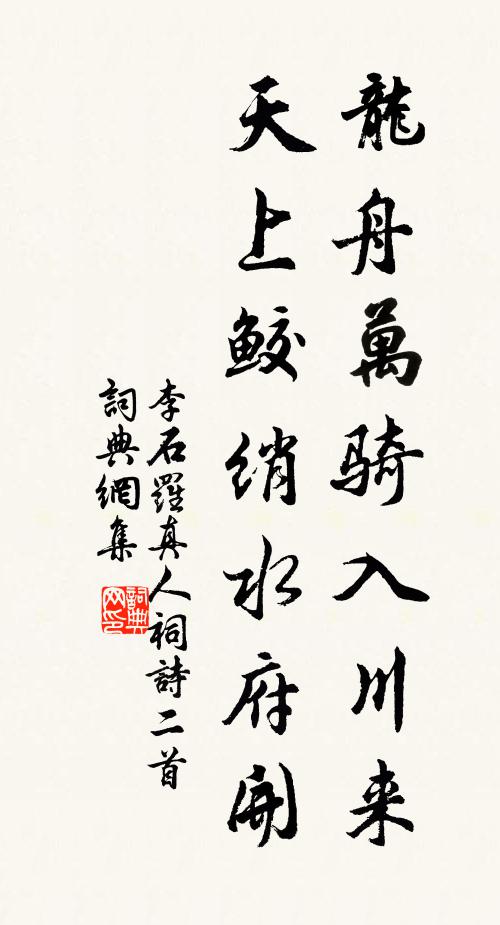 龍舟萬騎入川来
天上鮫綃水府開
李石羅真人祠詩二首
詞典網集
詞典网印